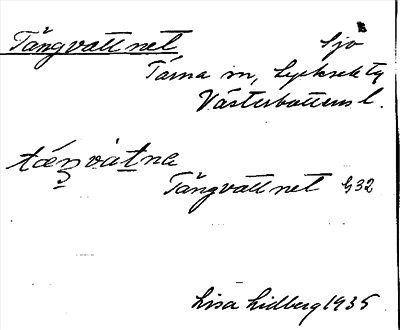 Tängvattnet Sjö
Tärna sn, Lycksele tg
Västerbottens l.
Tängvattnet G32
Lisa Lidberg 1935